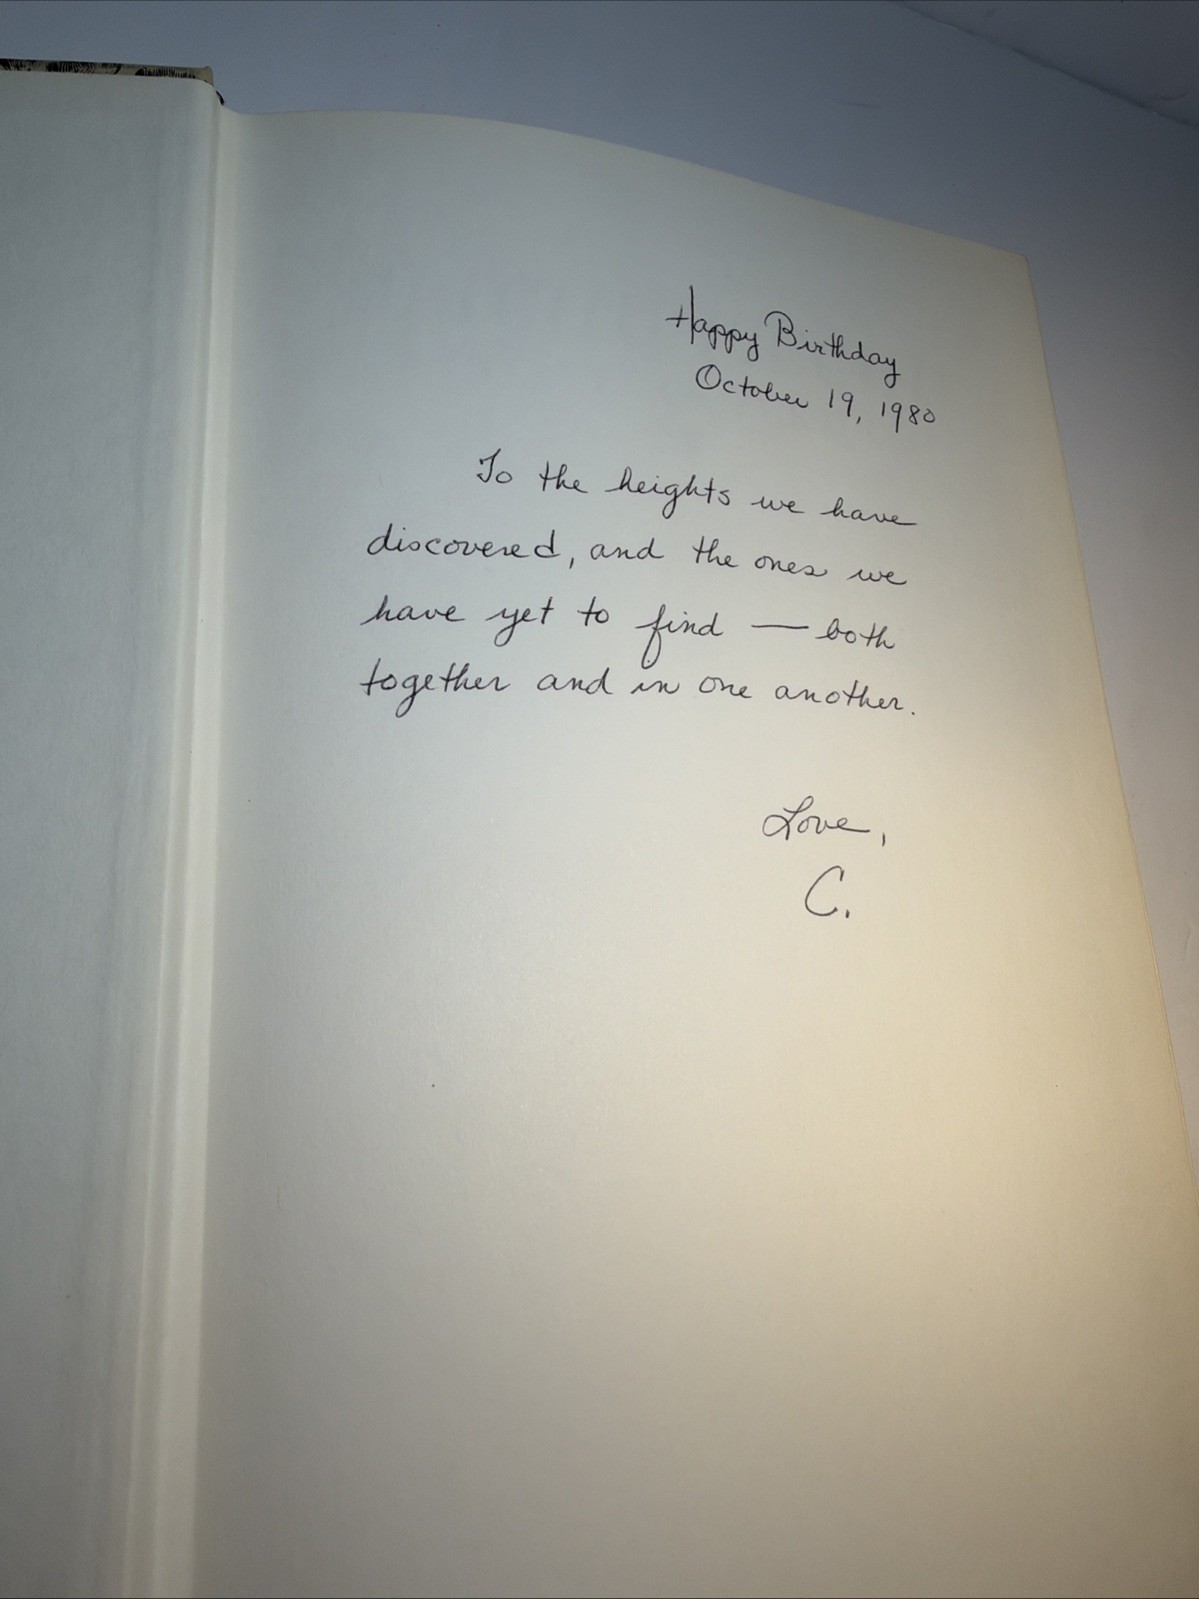 Happy Birthday
October 19, 1980
To the heights we have
discovered, and the ones we
have yet to find — both
together and in one another.
Love,
C.